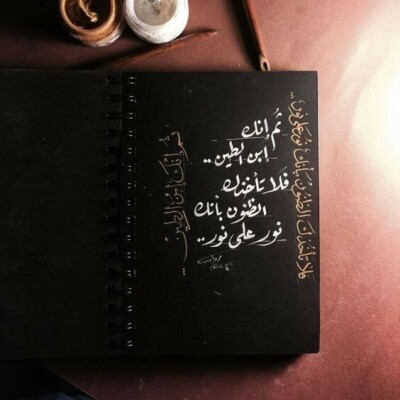 ثم إنك
إبن الطين..
فلا تأخذك
الظنون بأنك
نور على نور..
ثم إنك ابن الطين...
فلا تأخذك الظنون بأنك نور على نور...